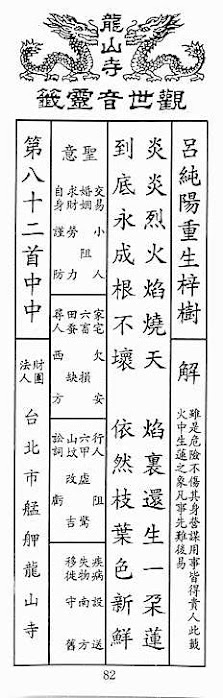 龍山寺
觀世音靈籤
呂純陽重生梓樹
解
雖是危險不傷其身營謀用事皆得貴人此籤
火中生蓮之象凡事先難後易
炎炎烈火焰燒天　焰裏還生一朶蓮
到底永成根不壞　依然枝葉色新鮮
聖意
交易 小人
婚姻 阻
求財 勞力
自身 謹防
家宅 欠安
六畜 損
田蚕 缺
尋人 西方
行人 阻
六甲 虛驚
山坟 改吉
訟詞 虧
疾病 設送
失物 南方
移徙 守舊
第八十二首中中
財團法人 台北市艋舺龍山寺
82